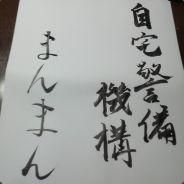 自宅警備
機構
まんまん